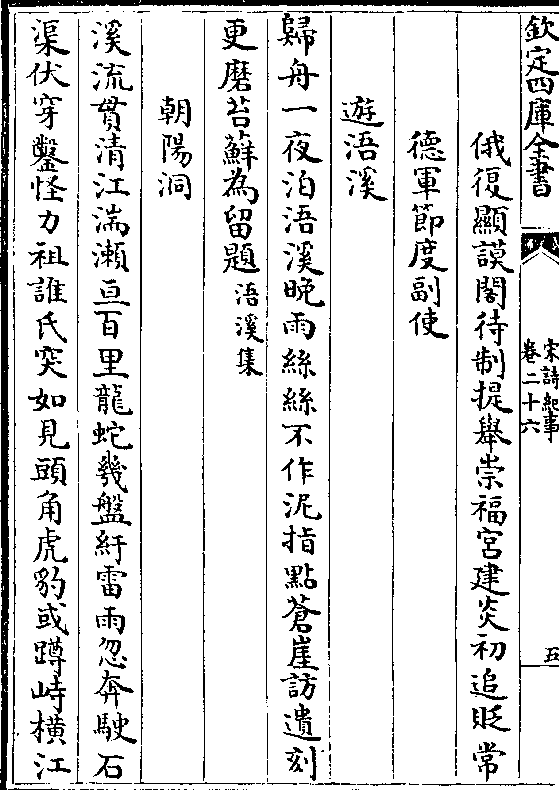 欽定四庫全書
宋詩紀事
卷二十六
五
俄復顯謨閣待制提舉崇福宮建炎初追貶常
德軍節度副使
遊浯溪
歸舟一夜泊浯溪晚雨絲絲不作泥指點蒼崖訪遺刻
更磨苔蘚為留題浯溪集
朝陽洞
溪流貫清江湍瀬亘百里龍蛇幾盤紆雷雨忽奔駛石
渠伏穿鑿怪力祖誰氏突如見頭角虎豹或蹲峙橫江